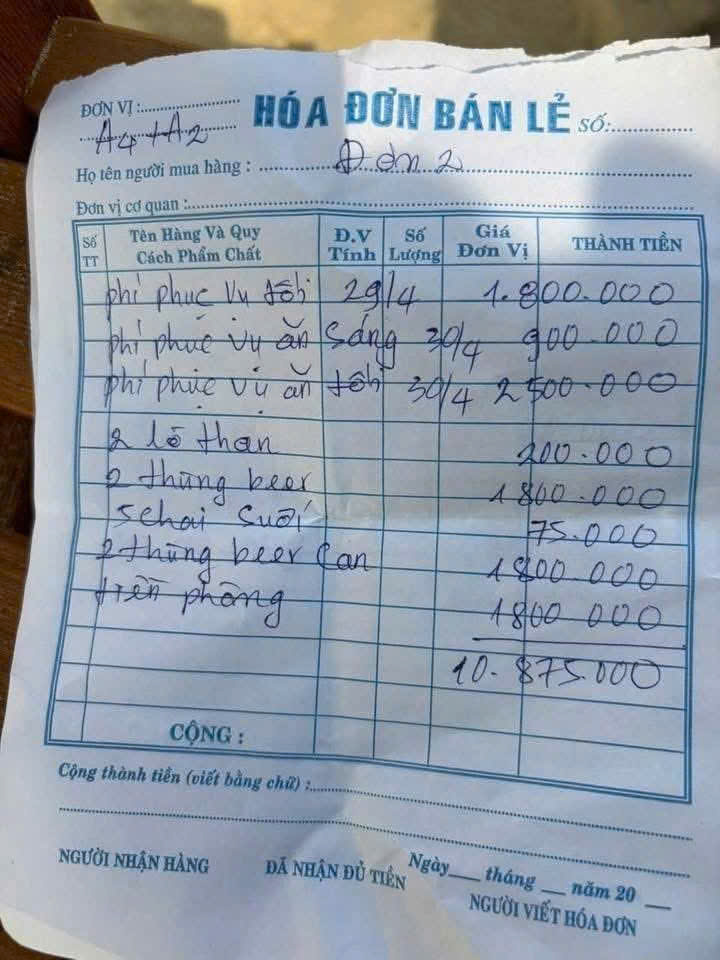 ĐƠN VỊ:
HÓA ĐƠN BÁN LẺ SỐ:
A4 + A2
Họ tên người mua hàng : Đơn 2
Đơn vị cơ quan :
Số TT
Tên Hàng Và Quy Cách Phẩm Chất
Đ.V Tính
Số Lượng
Giá Đơn Vị
THÀNH TIỀN
phí phục vụ tối 29/4 1.800.000
phí phục vụ ăn sáng 30/4 900.000
phí phục vụ ăn tối 30/4 2500.000
2 lò than 200.000
2 thùng beer 1800.000
5 chai suối 75.000
2 thùng beer can 1800.000
tiền phòng 1800 000
10.875.000
CỘNG :
Cộng thành tiền (viết bằng chữ) :
Ngày tháng năm 20
NGƯỜI NHẬN HÀNG ĐÃ NHẬN ĐỦ TIỀN NGƯỜI VIẾT HÓA ĐƠN